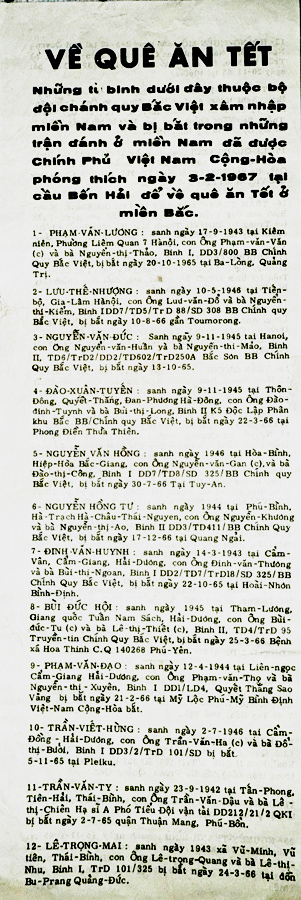 VỀ QUÊ ĂN TẾT
Những tù binh dưới đây thuộc bộ
đội chánh quy Bắc Việt xâm nhập
miền Nam và bị bắt trong những
trận đánh ở miền Nam đã được
Chính Phủ Việt Nam Cộng-Hòa
phóng thích ngày 3-2-1967 tại
cầu Bến Hải để về quê ăn Tết ở
miền Bắc.
1- PHẠM-VĂN-LƯƠNG : sanh ngày 17-9-1943 tại Kiêm
niên, Phường Liệm Quan 7 Hànội, con Ông Phạm-văn-Vân
(c) và bà Nguyễn-thị-Thảo, Binh I, DD3/800 BB Chính
Quy Bắc Việt, bị bắt ngày 20-10-1965 tại Ba-Lòng, Quảng
Trị.
2- LƯU-THẾ-NHƯỢNG : sanh ngày 10-5-1946 tại Tiến-
bộ, Gia-Lâm Hànội, con Ông Lưu-văn-Đổ và bà Nguyễn-
thị-Kiếm, Binh IDD7/TD5/TrD 88/SD 308 BB Chính quy
Bắc Việt, bị bắt ngày 10-8-66 gần Toumorong.
3- NGUYỄN-VĂN-ĐỨC : Sanh ngày 9-11-1945 tại Hanoi,
con Ông Nguyễn-văn-Huấn và bà Nguyễn-thị-Mão, Binh
II, TD6/TrD2/DD2/TD602/TrD250A Bắc Sơn BB Chính
Quy Bắc Việt, bị bắt ngày 13-10-65.
4- ĐÀO-XUÂN-TUYÊN : sanh ngày 9-11-1945 tại Thôn-
Đông, Quyết-Thắng, Đan-Phương Hà-Đông, con Ông Đào-
đinh-Tuynh và bà Bùi-thị-Long, Binh II K5 Độc Lập Phân
khu Bắc BB/Chính quy Bắc Việt, bị bắt ngày 22-3-66 tại
Phong Điền Thừa Thiên.
5- NGUYỄN VĂN HỒNG : sanh ngày 1946 tại Hòa-Bình,
Hiệp-Hòa Bắc-Giang, con Ông Nguyễn-văn-Gan (c),và bà
Đào-thị-Công, Binh I DD7/TD8/SD 325/BB Chính quy
Bắc Việt, bị bắt ngày 30-7-66 Tại Tuy-An.
6- NGUYỄN HỒNG TƯ : sanh ngày 1944 tại Phú-Bình,
Hà-Trạch Hà-Châu-Thái-Nguyên, con Ông Nguyễn-Khương
và bà Nguyễn-thị-Ao, Binh II DD3/TD411/BB Chính Quy
Bắc Việt, bị bắt ngày 17-12-66 tại Quang Ngãi.
7- ĐINH-VĂN-HUYNH : sanh ngày 14-3-1943 tại Cẩm-
Vân, Cẩm-Giang, Hải-Dương, con Ông Đinh-văn-Thường
và bà Bùi-thị-Ngoan, Binh I DD2/TD7/TrD18/SD 325/BB
Chính Quy Bắc Việt, bị bắt ngày 22-10-65 tại Hoài-Nhơn
Bình-Định.
8- BÙI ĐỨC HỘI : sanh ngày 1945 tại Tham-Lương,
Giang quốc Tuấn Nam Sách, Hải-Dương, con Ông Bùi-
đức-Tu (c) và bà Lê-thị-Thiết (c), Binh II, TD4/TrD 95
Truyền-tin Chính Quy Bắc Việt, bị bắt ngày 25-3-66 Bệnh
xá Hoa Thinh C.Q 140268 Phú-Yên.
9- PHẠM-VĂN-ĐẠO : sanh ngày 12-4-1944 tại Liên-ngọc
Cẩm-Giang Hải-Dương, con Ông Phạm-văn-Thọ và bà
Nguyễn-thị-Xuyên, Binh I DD1/LD4, Quyết Thắng Sao
Vàng bị bắt ngày 21-2-66 tại Mỹ Lộc Phú-Mỹ Bình Định
Việt-Nam Cộng-Hòa bắt.
10- TRẦN-VIẾT-HÙNG : sanh ngày 2-7-1946 tại Cẩm-
Đông - Hải-Dương, con Ông Trần-Văn-Ha (c) và bà Đổ-
thị-Bưởi, Binh I DD3/2/TrD 101/SD bị bắt
5-11-65 tại Pleiku.
11-TRẦN-VĂN-TY : sanh ngày 23-9-1942 tại Tân-Phong,
Tiên-Hải, Thái-Bình, con Ông Trần-Văn-Dậu và bà Lê -
thị-Chiên Hạ sĩ A Phó Tiểu Đội vận tải DD212/21/2 QKI
bị bắt ngày 2-7-65 quận Thuận Mang, Phú-Bổn.
12- LÊ-TRỌNG-MAI : sanh ngày 1943 xã Vũ-Minh, Vũ
tiên, Thái-Bình, con Ông Lê-trọng-Quang và bà Lê-thị-
Nhu, Binh I, TrD 101/325 bị bắt ngày 24-3-66 tại đồn
Bu-Prang Quảng-Đức.